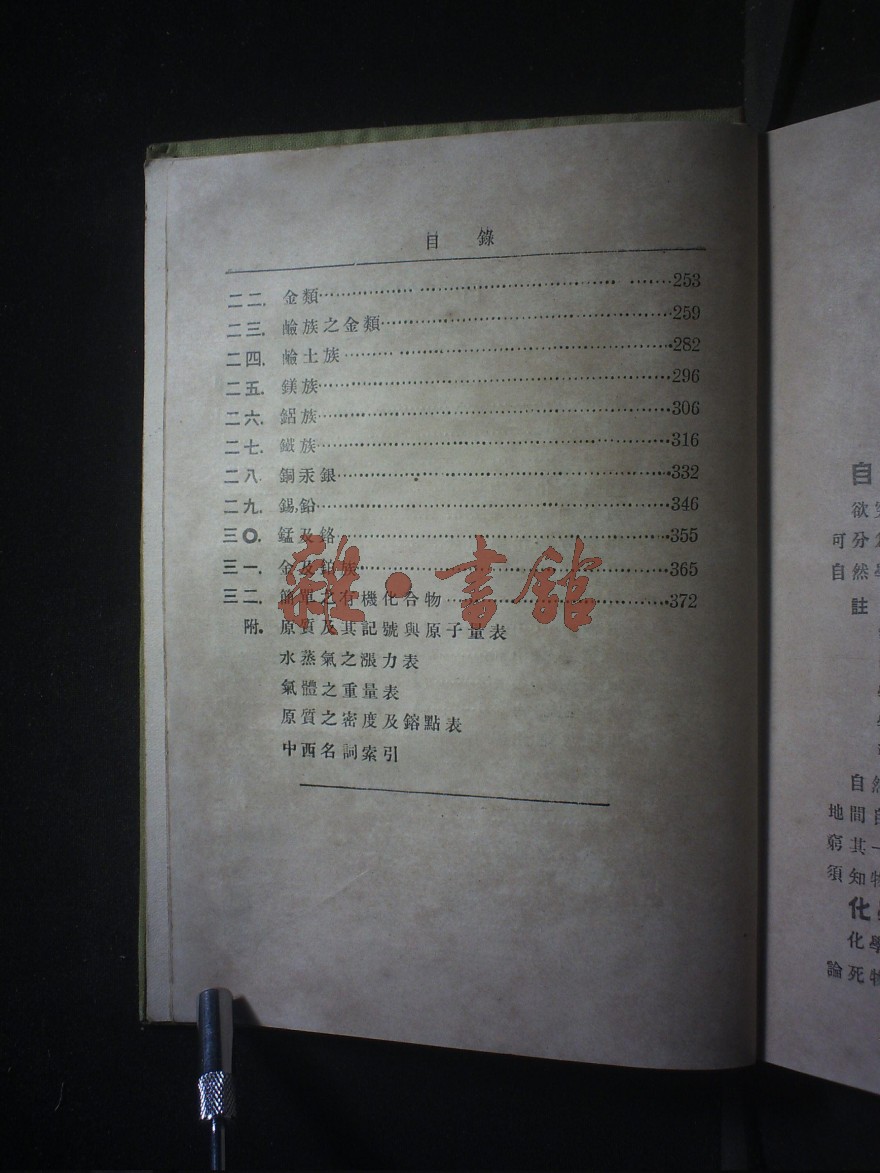 目錄
二二. 金類……253
二三. 鹼族之金類……259
二四. 鹼土族……282
二五. 鎂族……296
二六. 鋁族……306
二七. 鐵族……316
二八 銅汞銀……332
二九. 錫,鉛……346
三〇. 錳及鉻……355
三一. 金及鉑族……365
三二. 簡單之有機化合物……372
附. 原質及其記號與原子量表
水蒸氣之漲力表
氣體之重量表
原質之密度及鎔點表
中西名詞索引
雜·書館
自
欲
可分
自然
註
自然
地間自
窮其一
須知物
化學
化學
論死物